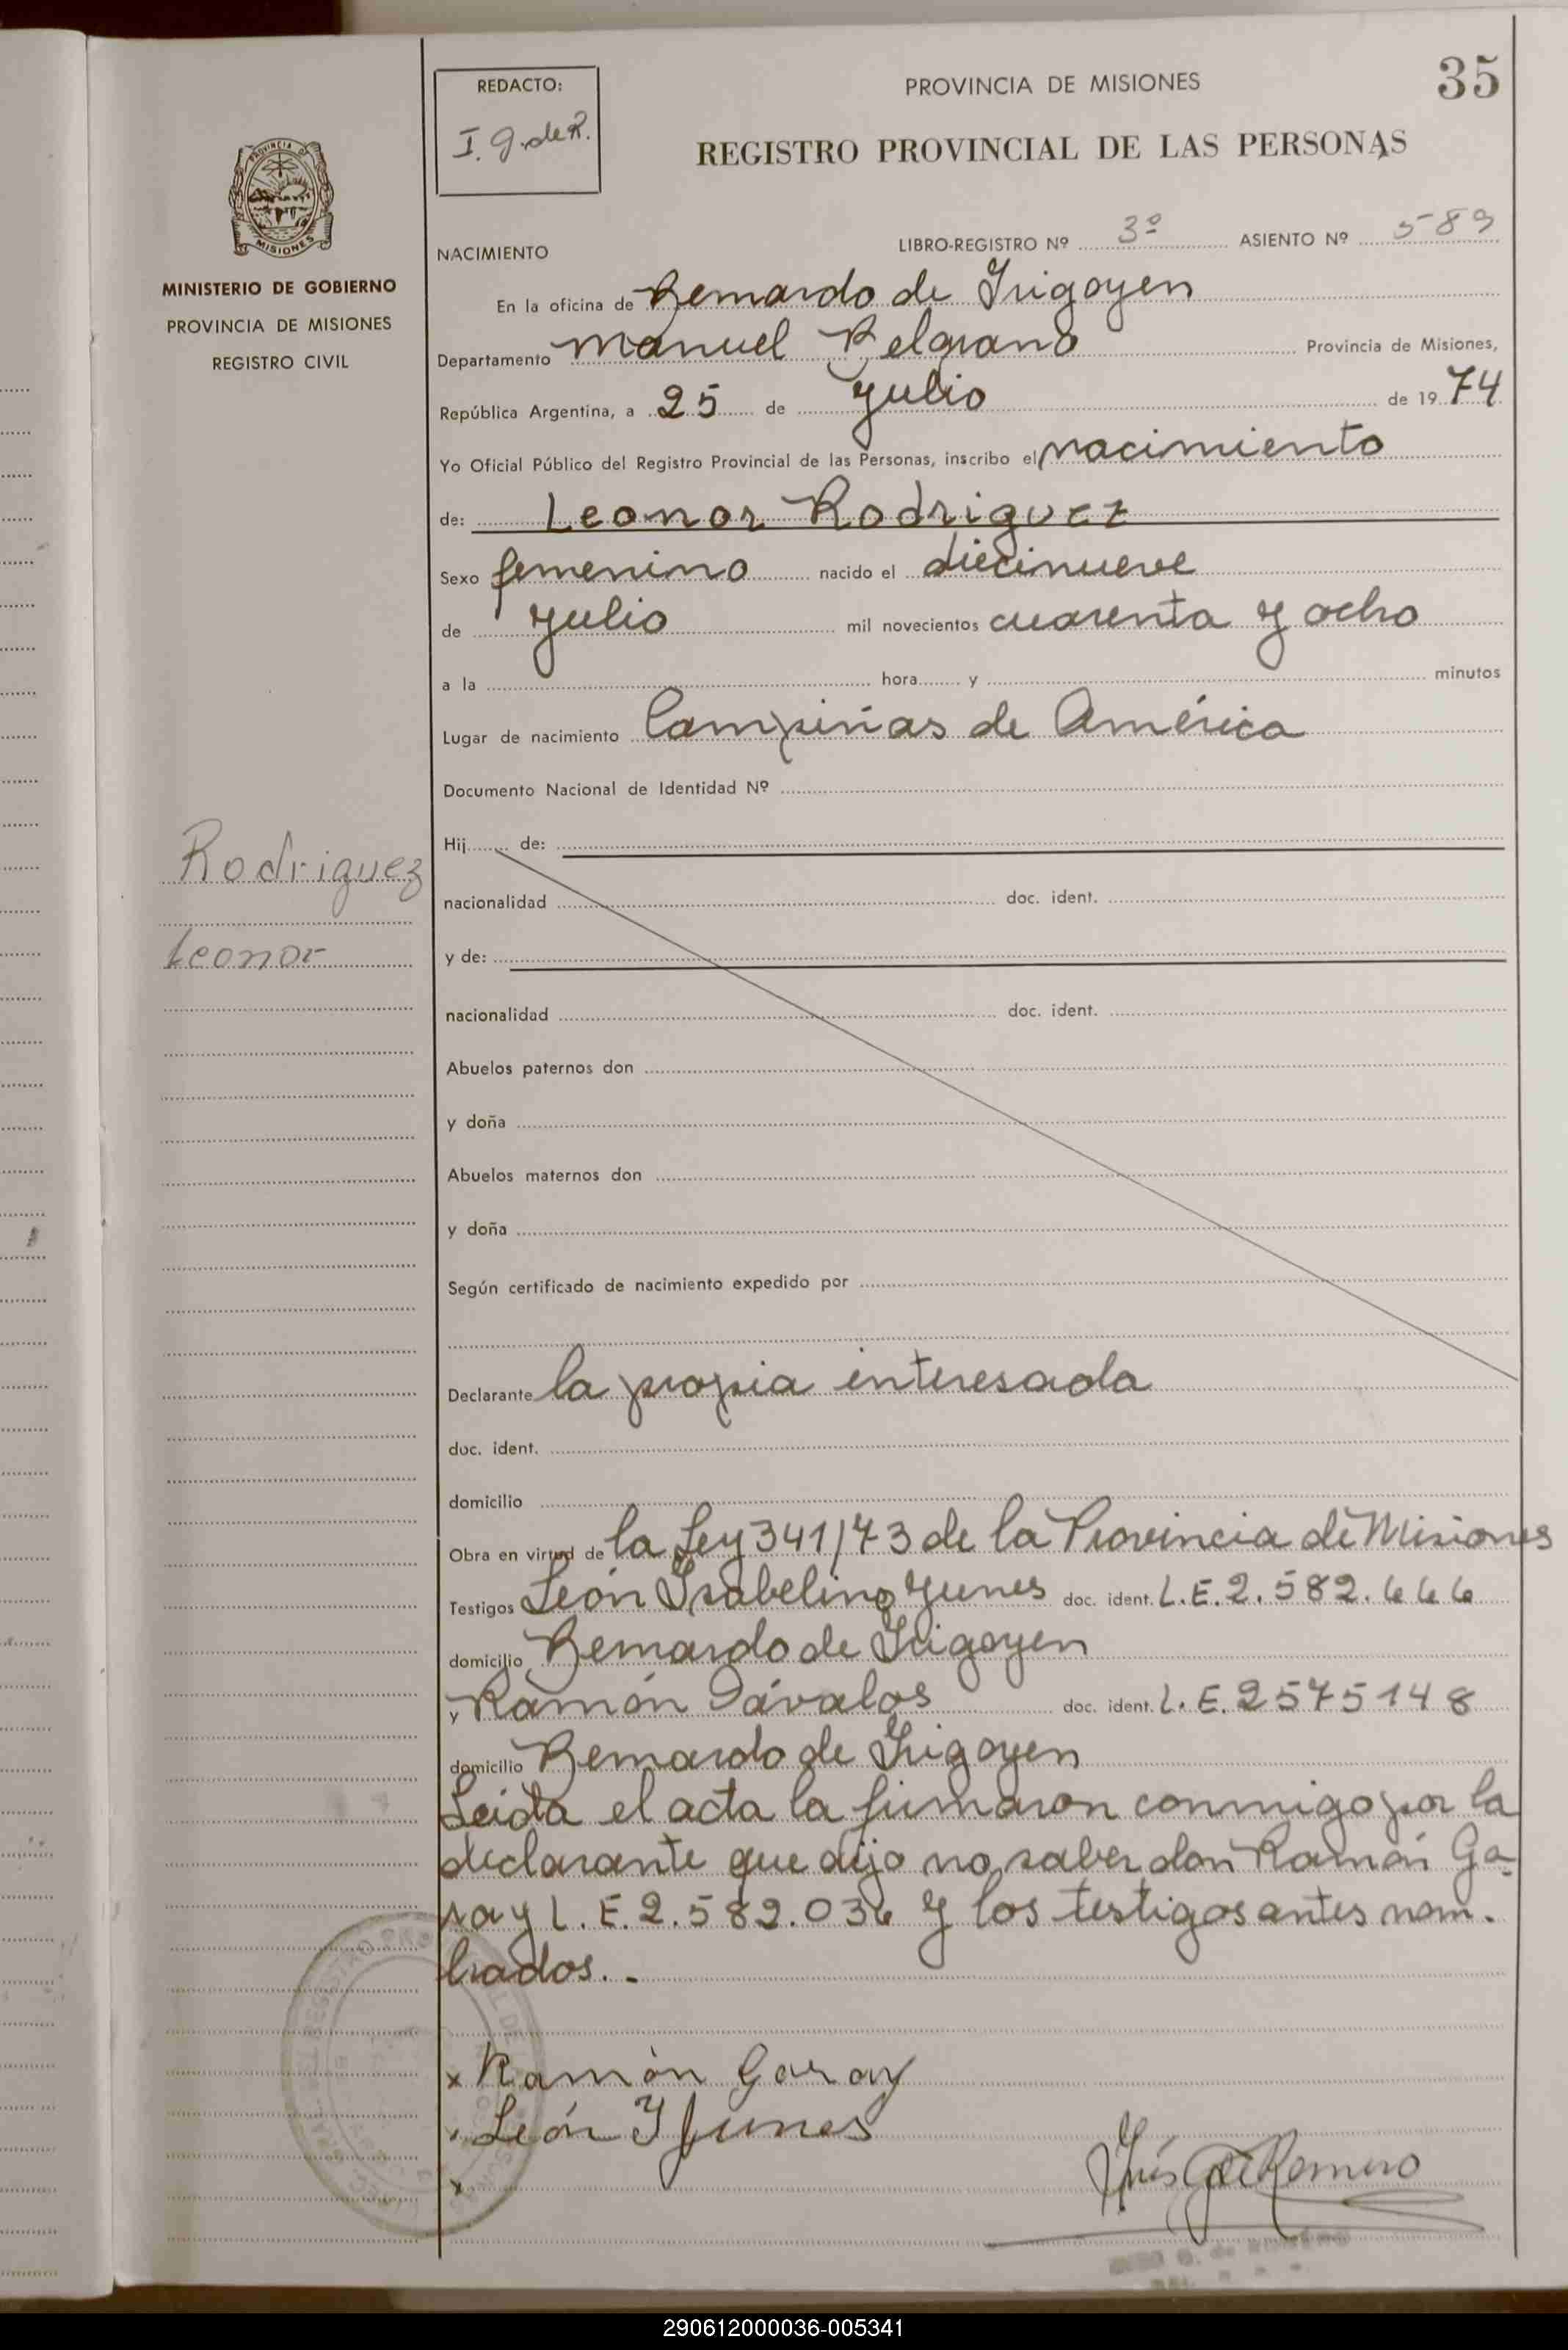 35
REDACTO:
I. G. de R.
PROVINCIA DE MISIONES
REGISTRO PROVINCIAL DE LAS PERSONAS
PROVINCIA DE
MISIONES
MINISTERIO DE GOBIERNO
PROVINCIA DE MISIONES
REGISTRO CIVIL
NACIMIENTO
LIBRO-REGISTRO Nº 3º ASIENTO Nº 589
En la oficina de Bernardo de Irigoyen
Departamento Manuel Belgrano Provincia de Misiones,
República Argentina, a 25 de Julio de 1974
Yo Oficial Público del Registro Provincial de las Personas, inscribo el nacimiento
de: Leonor Rodriguez
Sexo femenino nacido el diecinueve
de Julio mil novecientos cuarenta y ocho
a la hora y minutos
Lugar de nacimiento Campiñas de América
Documento Nacional de Identidad Nº
Hij de:
Rodriguez
nacionalidad doc. ident.
Leonor
y de:
nacionalidad doc. ident.
Abuelos paternos don
y doña
Abuelos maternos don
y doña
Según certificado de nacimiento expedido por
Declarante la propia interesada
doc. ident.
domicilio
Obra en virtud de la Ley 341/73 de la Provincia de Misiones
Testigos León Isabelino Yunes doc. ident. L.E.2.582.666
domicilio Bernardo de Irigoyen
y Ramón Dávalos doc. ident. L.E.2575148
domicilio Bernardo de Irigoyen
Leída el acta la firmaron conmigo por la
declarante que dijo no saber don Ramón Ga-
ray L.E.2.582.036 y los testigos antes nom-
brados.-
x Ramón Garay
León I Yunes
x
Inés G de Romero
290612000036-005341